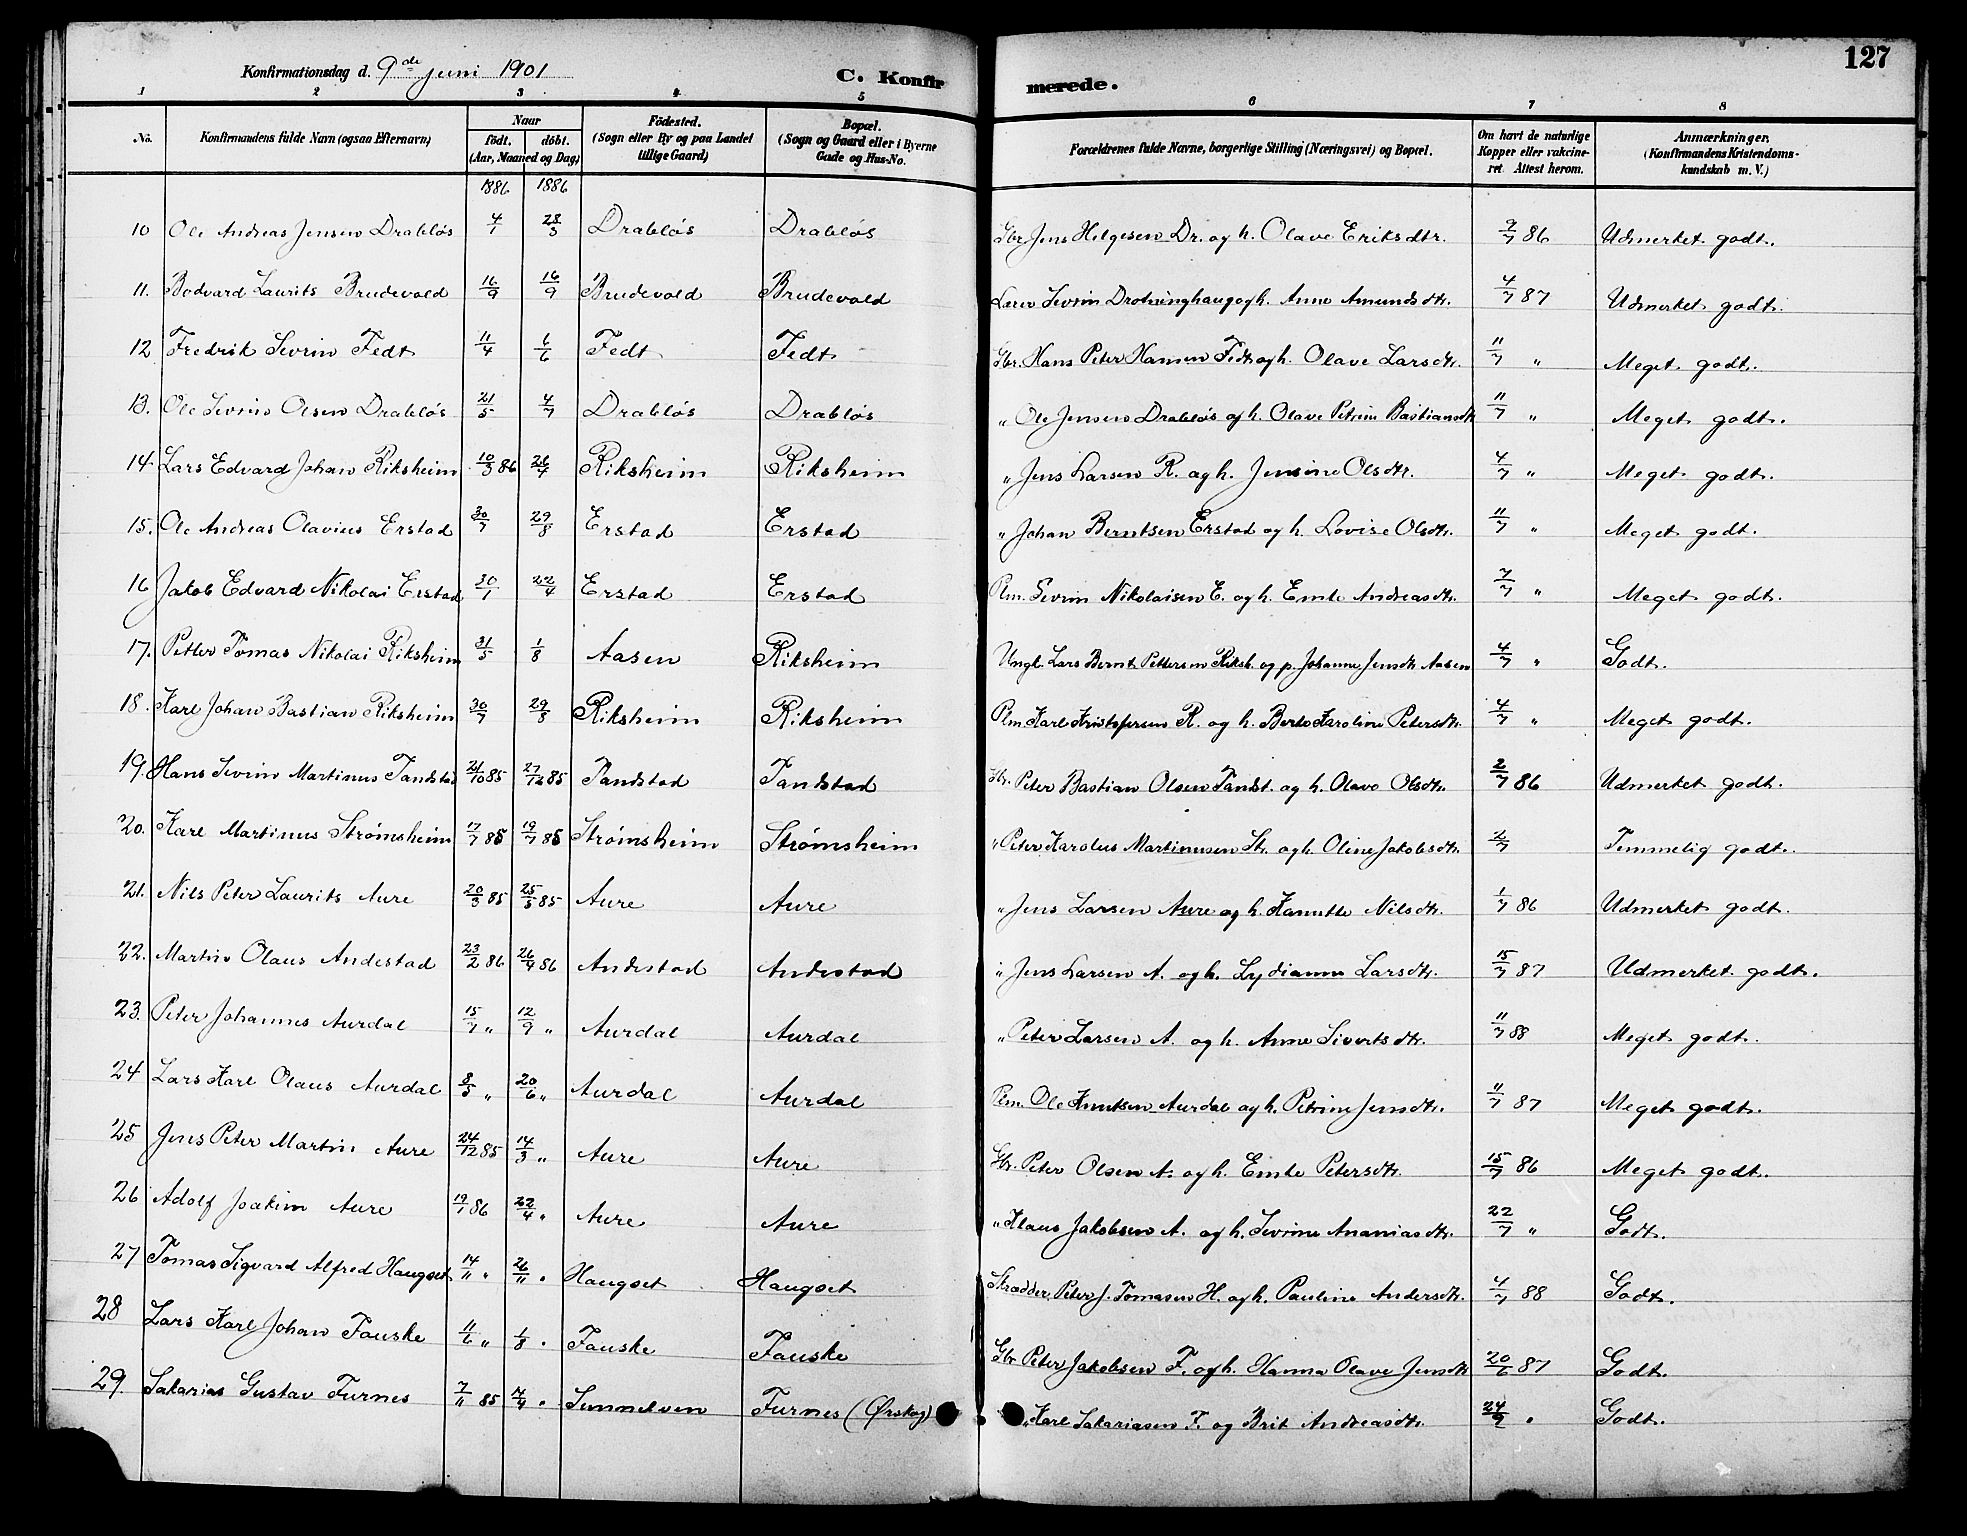 127
Konfirmationsdag d. 9de Juni 1901 C. Konfirmerede.
1 2 3 4 5 6 7 8
No. Konfirmandens fulde Navn (ogsaa Efternavn) Naar födt. döbt. (Aar, Maaned og Dag) Födested. (Sogn eller By og paa Landet tillige Gaard) Bopæl. (Sogn og Gaard eller i Byerne Gade og Hus-No. Forældrenes fulde Navne, borgerlige Stilling (Næringsvei) og Bopæl. Om havt de naturlige Kopper eller vakcineret Attest herom. Anmærkninger, (Konfirmandens Kristendomskundskab m. V.)
1886 1886
10 Ole Andreas Jensen Drabløs 4/1 28/3 Drabløs Drabløs Gbr. Jens Helgesen Dr. og h. Olave Eriksdtr. 9/7 86 Udmerket godt.
11. Bodvard Laurits Brudevold 16/9 16/9 Brudevold Brudevold Lærer Sevrin Drotninghaug og h. Anne Amundsdtr. 4/7 87 Udmerket godt.
12 Fredrik Sevrin Fedt 11/4 6/6 Fedt Fedt Gbr. Hans Peter Hansen Fedt og h. Olave Larsdtr. 11/7 " Meget godt.
13. Ole Sevrin Olsen Drabløs 21/5 4/7 Drabløs Drabløs " Ole Jensen Drabløs og h. Olave Petrine Bastiansdtr 11/7 " Meget godt.
14. Lars Edvard Johan Riksheim 10/3 86 26/4 Riksheim Riksheim " Jens Larsen R. og h. Jensine Olsdtr. 4/7 " Meget godt.
15. Ole Andreas Olavius Erstad 30/7 29/8 Erstad Erstad " Johan Berntsen Erstad og h. Lovise Olsdtr. 11/7 " Meget godt.
16 Jakob Edvard Nikolai Erstad 30/1 22/4 Erstad Erstad Plm. Sevrin Nikolaisen E. og h. Emle Andreasdtr. 7/7 " Meget godt.
17. Petter Tomas Nikolai Riksheim 31/5 1/8 Aasen Riksheim Ungk. Lars Bernt Pettersen Riksh. og p. Johanne Jensdtr Aasen 4/7 " Godt.
18. Karl Johan Bastian Riksheim 30/7 29/8 Riksheim Riksheim Plm. Karl Kristofersen R. og h. Berte Karoline Petersdtr. 4/7 " Meget godt.
19. Hans Sevrin Martinus Tandstad 21/10 85 27/12 85 Tandstad Tandstad Gbr. Peter Bastian Olsen Tandst. og h. Olave Olsdtr. 2/7 86 Udmerket godt.
20. Karl Martinus Strømsheim 17/7 85 19/7 85 Strømsheim Strømsheim " Peter Karolus Martinusen Str. og h. Oline Jakobsdtr. 2/7 Temmelig godt.
21. Nils Peter Laurits Aure 20/3 85 25/5 85 Aure Aure " Jens Larsen Aure og h. Kanutte Nilsdtr. 1/7 86 Udmerket godt.
22. Martin Olaus Andestad 23/2 86 26/4 86 Andestad Andestad " Jens Larsen A. og h. Lydianna Larsdtr. 15/7 87 Udmerket godt.
23. Peter Johannes Aurdal 15/7 " 12/9 " Aurdal Aurdal " Peter Larsen A. og h. Anne Sivertsdtr. 11/7 88 Meget godt.
24 Lars Karl Olaus Aurdal 8/5 " 20/6 " Aurdal Aurdal Plm. Ole Knutsen Aurdal og h. Petrine Jensdtr. 11/7 87 Meget godt.
25 Jens Peter Martin Aure 24/12 85 14/3 " Aure Aure Gbr. Peter Olsen A. og h. Emle Petersdtr. 15/7 86 Meget godt.
26 Adolf Joakim Aure 19/1 86 22/4 " Aure Aure " Klaus Jakobsen A. og h. Sevrine Ananiasdtr. 22/7 " Godt.
27 Tomas Sigvard Alfred Haugset 14/11 " 26/11 " Haugset Haugset Skrædder Peter J. Tomasen H. og h. Pauline Andersdtr. 4/7 88 Godt.
28 Lars Karl Johan Fauske 11/6 " 1/8 " Fauske Fauske Gbr Peter Jakobsen F. og h. Hanna Olave Jensdtr 20/6 87 Godt.
29. Sakarias Gustav Furnes 7/11 85 4/4 " Sunnelven Furnes (Ørskog) " Karl Sakariasen F. og Brit Andreasdtr. 24/9 " Godt.